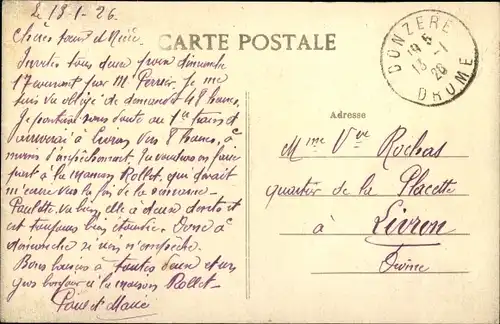 Le 13-1-26.
Chères sœur et Nièce
Invités tous deux pour dimanche
17 courant par Mr Perrier. Je me
suis vu obligé de demander 48 heures,
Je partirai sans doute au 1er train et
arriverai à Livron vers 8 heures, à
moins d'empêchement. Tu voudras en faire
part à la maison Rollet, qui devait
m'écrire vers la fin de la semaine-
Paulette va bien, elle a deux dents et
est toujours bien Donc à
dimanche si rien n'empêche.
Bons baisers à toutes deux et un
gros bonjour à la maison Rollet-
Paul et Marie
CARTE POSTALE
DONZERE
19 5
13 - 1
26
DROME
Adresse
Mme Vve Rochas
quartier de la Placette
à Livron
Drôme